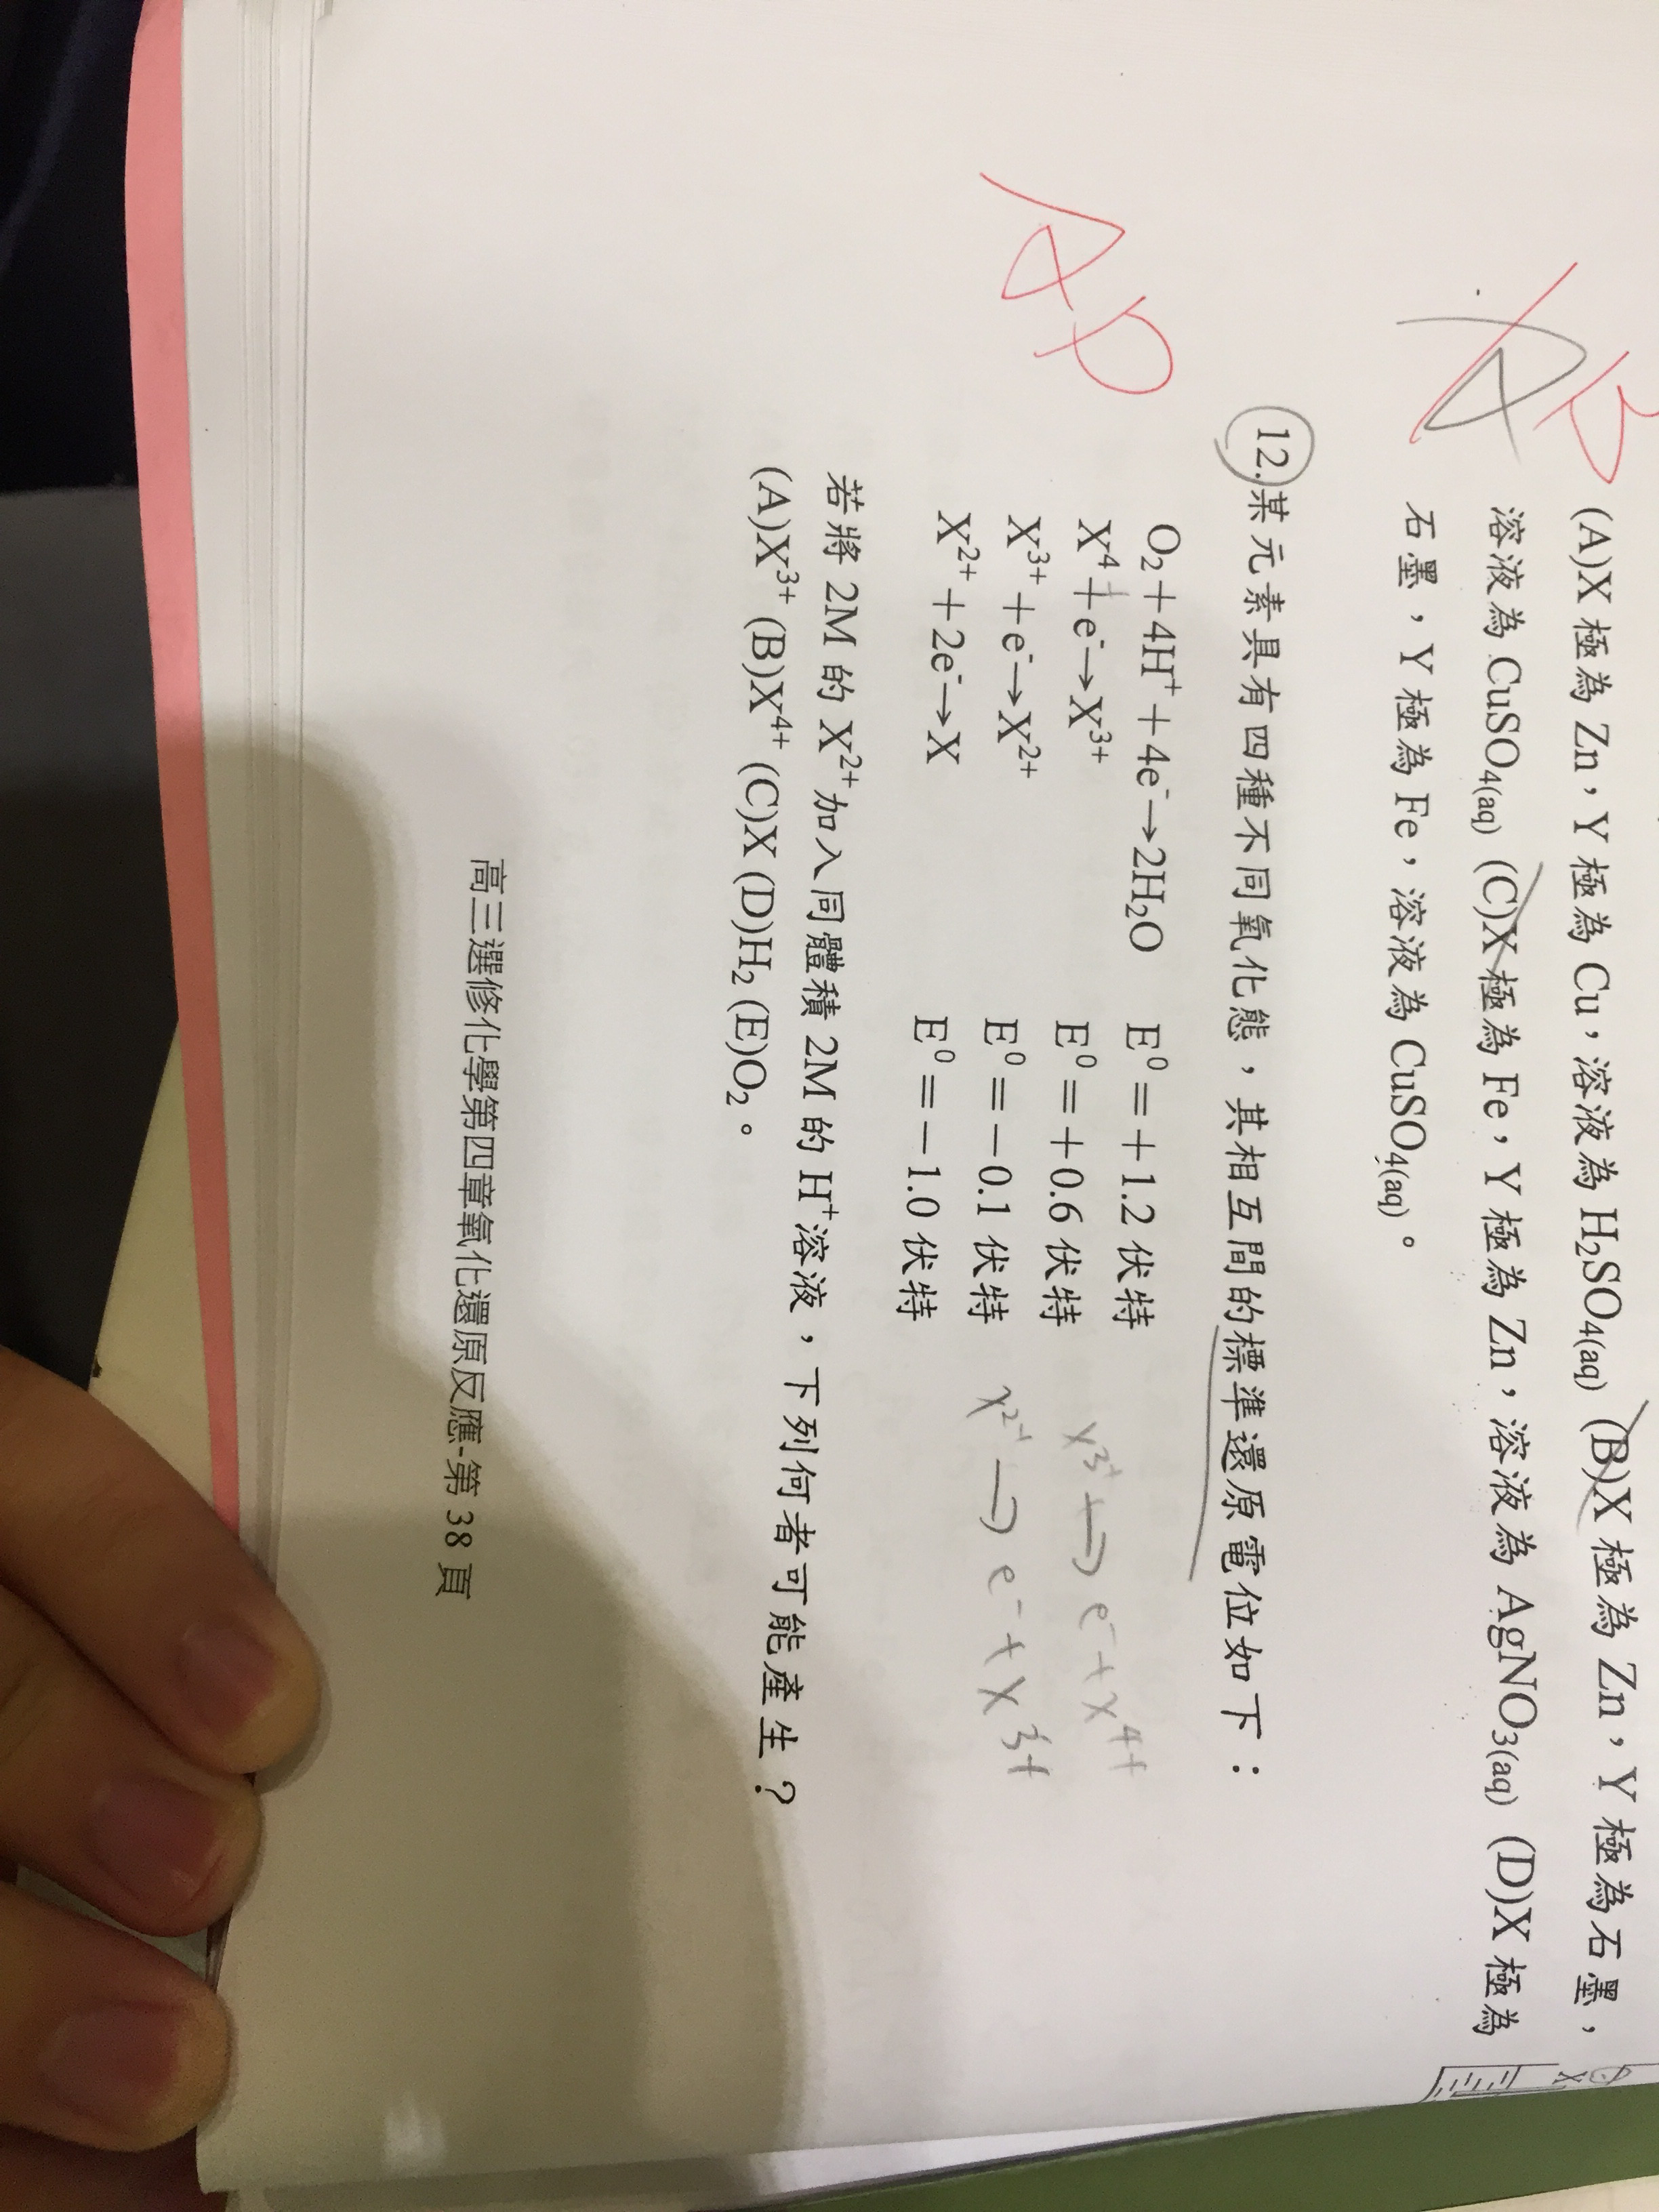 (A)X 極為 Zn，Y 極為 Cu，溶液為 H₂SO₄(aq) (B)X 極為 Zn，Y 極為石墨，
溶液為 CuSO₄(aq) (C)X 極為 Fe，Y 極為 Zn，溶液為 AgNO₃(aq) (D)X 極為
石墨，Y 極為 Fe，溶液為 CuSO₄(aq)。
A B
12.某元素具有四種不同氧化態，其相互間的標準還原電位如下：
O₂＋4H⁺＋4e⁻→2H₂O E⁰＝＋1.2 伏特
X⁴⁺＋e⁻→X³⁺ E⁰＝＋0.6 伏特 X³⁺ → e⁻ + X⁴⁺
X³⁺＋e⁻→X²⁺ E⁰＝－0.1 伏特 X²⁺ → e⁻ + X³⁺
X²⁺＋2e⁻→X E⁰＝－1.0 伏特
AD
若將 2M 的 X²⁺加入同體積 2M 的 H⁺溶液，下列何者可能產生？
(A)X³⁺ (B)X⁴⁺ (C)X (D)H₂ (E)O₂。
高三選修化學第四章氧化還原反應-第 38 頁